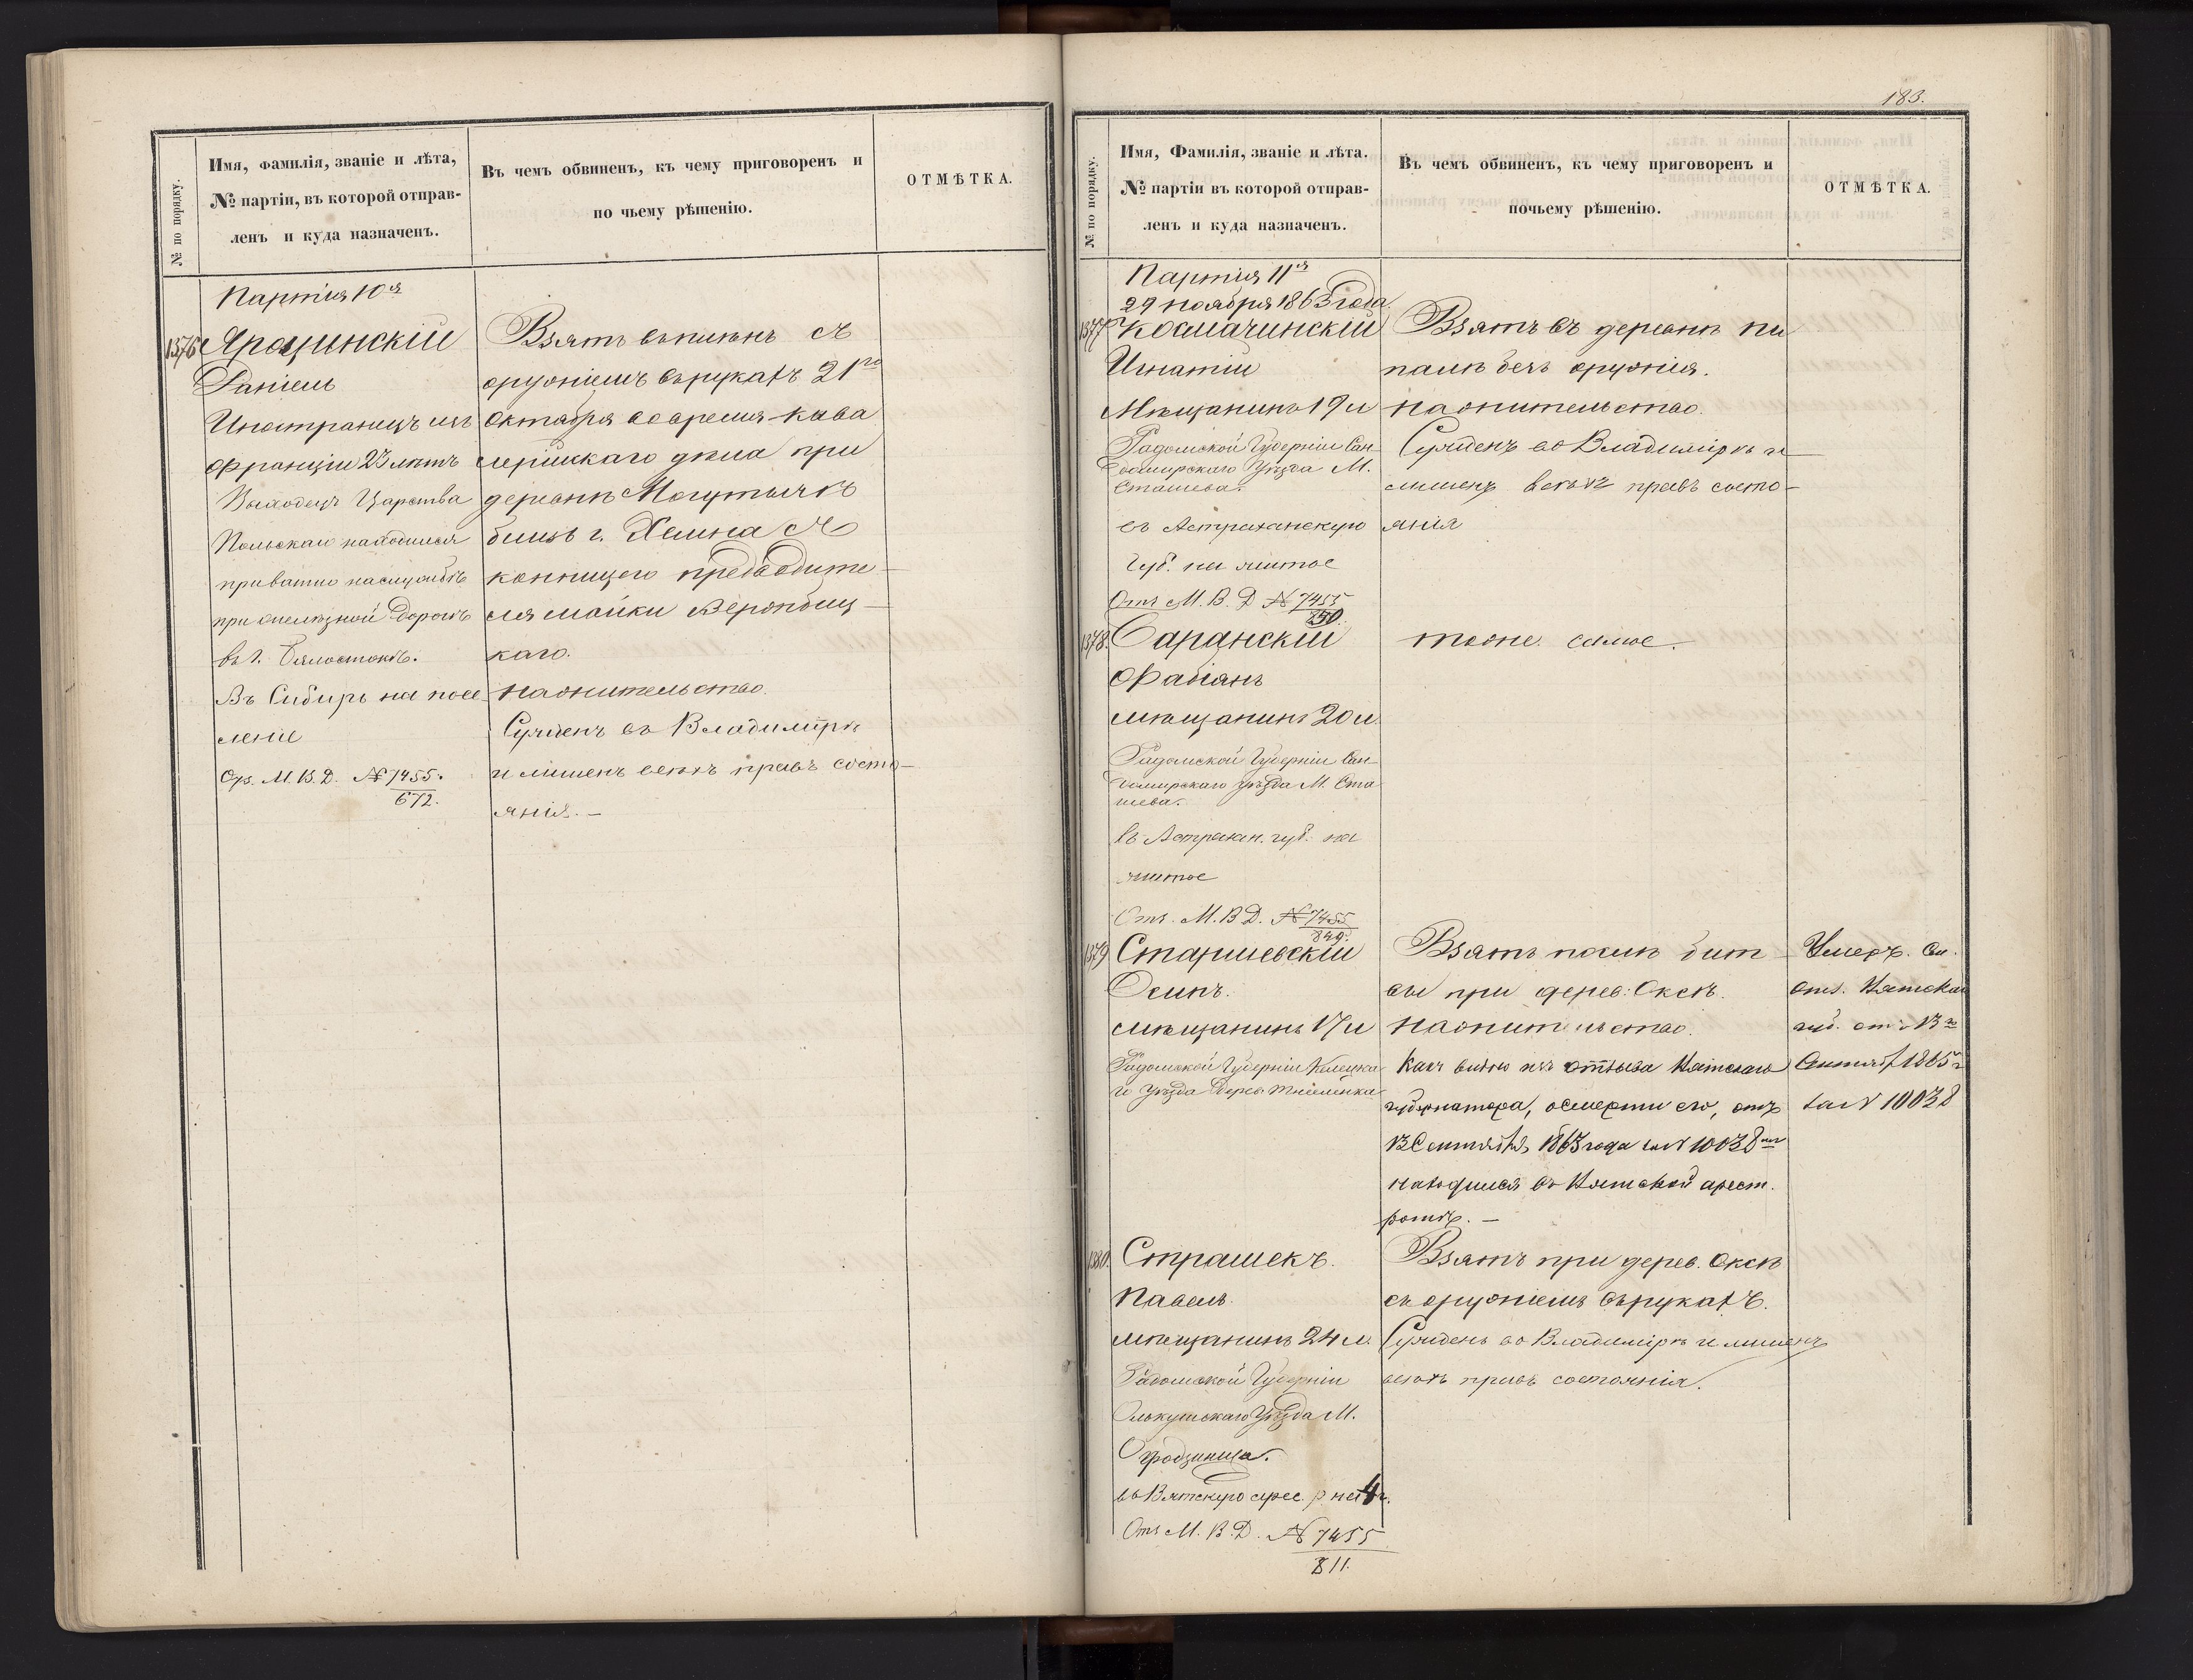 № по порядку.
Имя, фамилія, званіе и лѣта,
№ партіи, въ которой отправ-
ленъ и куда назначенъ.
Въ чемъ обвиненъ, къ чему приговоренъ и
по чьему рѣшенію.
ОТМѢТКА.
Партія 10я
1376
Даніель
Иностранецъ изъ
Франціи 23 лѣтъ
Выходецъ Царства
Польскаго находился
приватно на службѣ
при желѣзной дорогѣ
въ г. Бялостокѣ.
Въ Сибирь на посе
леніе
М. В. Д. № 7455.
672.
Взятъ въ плѣнъ съ
оружіемъ въ рукахъ 21го
Октября во время кава
лерійскаго дѣла при
деревнѣ
близь г. Хелма съ
конницею предводите-
ля шайки
каго.
На жительство.
Сужденъ во Владимірѣ
и лишенъ всѣхъ правъ состо-
янія. —
183.
№ по порядку.
Имя, Фамилія, званіе и лѣта.
№ партіи въ которой отправ-
ленъ и куда назначенъ.
Въ чемъ обвиненъ, къ чему приговоренъ и
почьему рѣшенію.
ОТМѢТКА.
Партія 11я
29 ноября 1863 года
1377
Игнатій
Мѣщанинъ 19 л
Радомской Губерніи Сан-
домирскаго Уѣзда М.
Сташева.
въ Астраханскую
Губ. на житье
Отъ М. В. Д № 7455
Взятъ въ деревнѣ
безъ оружія.
На жительство.
Сужденъ во Владимірѣ и
лишенъ всѣхъ правъ состо-
янія
1378.
Саранскій
Фабіянъ
мѣщанинъ 20 л.
Радомской Губерніи Сан-
домирскаго уѣзда М. Ста
шева.
въ Астрахан. губ. на
житье
Отъ. М. В Д. № 7455
849.
тоже самое.
1379
Старшевскій
Осипъ.
мѣщанинъ 17 л
Радомской Губерніи Келецка
го Уѣзда Дерев.
Взятъ послѣ бит
вы при дерев: Оксѣ.
На жительство.
Какъ видно изъ отзыва Вятскаго
губернатора, о смерти его, отъ
13 Сентября 1865 года за № 10038мъ
находился въ Вятской арест.
ротѣ. —
Умеръ. См.
отз. Вятскаго
губ. отъ 13го
Сентяб 1865 г
за № 10038
1380.
Страшекъ.
Павелъ.
мѣщанинъ 24 л.
Радомской Губерніи
Олькушскаго Уѣзда М.
въ Вятскую арес. р. на 4 г.
Отъ М. В. Д. № 7455
811.
Взятъ при дерев. Оксѣ
съ оружіемъ въ рукахъ.
Сужденъ во Владимірѣ и лишенъ
всѣхъ правъ состоянія.